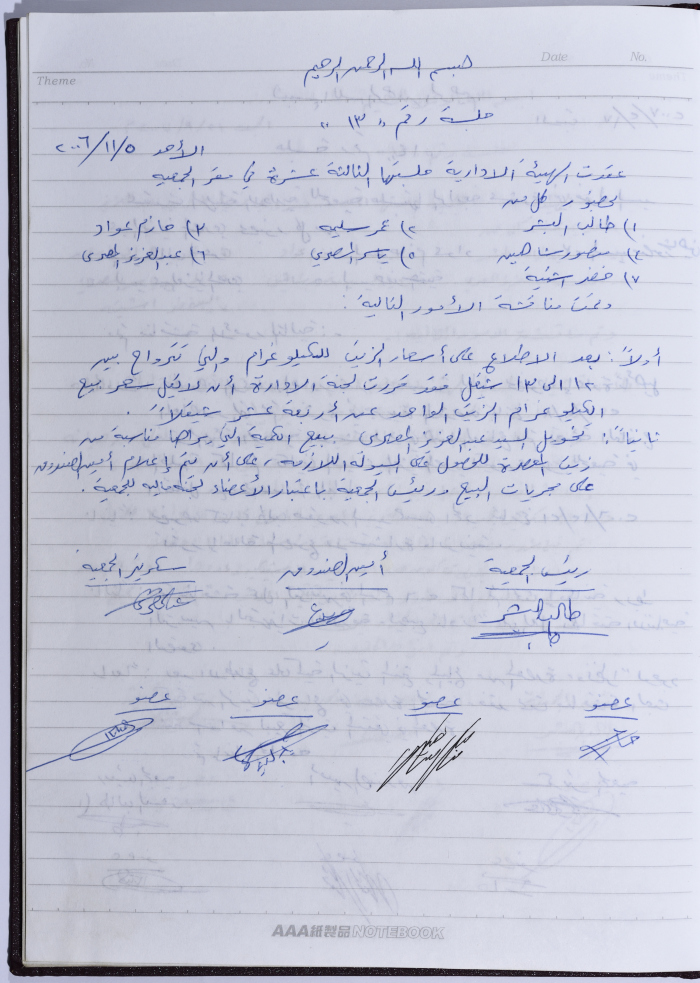 Theme
Date
No.
بسم الله الرحمن الرحيم
جلسة رقم " ١٣ "
الأحد ٢٠٠٦/١١/٥
عقدت الهيئة الادارية جلستها الثالثة عشرة في مقر الجمعيه
بحضور كل من
١) طالب البشر ٢) عمر سليمه ٣) حازم عواد
٤) منصور شاهين ٥) ياسر المصري ٦) عبد العزيز المصري
٧) خضر اشتية
وتمت مناقشة الأمور التالية :
أولاً : بعد الاطلاع على أسعار الزيت للكيلو غرام والتي تتراوح بين
١٢ الى ١٣ شيقل فقد قررت لجنة الادارة أن لا يقل سعر بيع
الكيلو غرام الزيت الواحد عن أربعة عشر شيقلاً .
ثانياً : تخويل السيد عبد العزيز المصري ببيع الكمية التي يراها مناسبة من
زيت المعصرة للحصول على السيولة اللازمة ، على أن يتم إعلام أمين الصندوق
على مجريات البيع ورئيس الجمعية باعتبار الأعضاء لجنة ماليه للجمعية .
رئيس الجمعية أمين الصندوق سكرتير الجمعيه
طالب البشر
عضو عضو عضو عضو
AAA紙製品NOTEBOOK